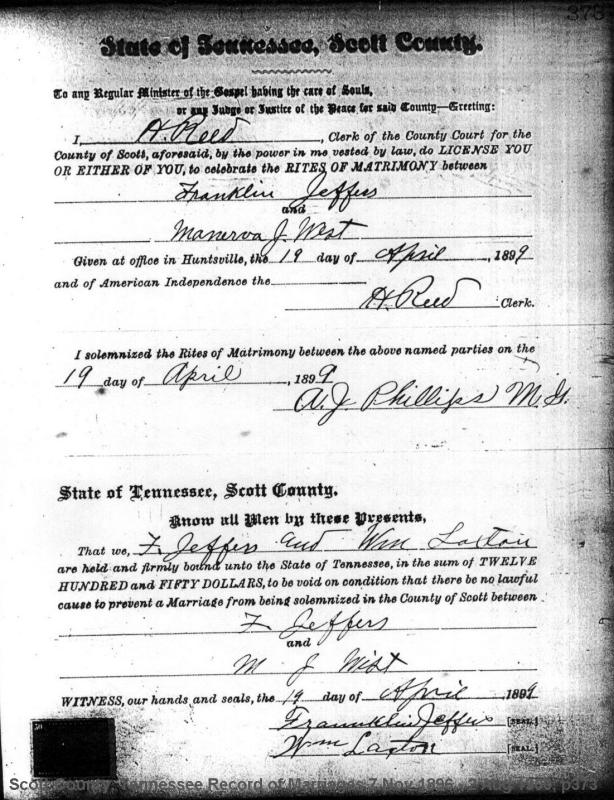 373
State of Tennessee, Scott County.
To any Regular Minister of the Gospel having the care of Souls,
or any Judge or Justice of the Peace for said County—Greeting:
I, H. Reed, Clerk of the County Court for the
County of Scott, aforesaid, by the power in me vested by law, do LICENSE YOU
OR EITHER OF YOU, to celebrate the RITES OF MATRIMONY between
Franklin Jeffers
and
Manerva J. West
Given at office in Huntsville, the 19 day of April, 1899
and of American Independence the
H. Reed Clerk.
I solemnized the Rites of Matrimony between the above named parties on the
19 day of April, 1899
A. J. Phillips M. G.
State of Tennessee, Scott County.
Know all Men by these Presents,
That we, F. Jeffers and Wm Laxton
are held and firmly bound unto the State of Tennessee, in the sum of TWELVE
HUNDRED and FIFTY DOLLARS, to be void on condition that there be no lawful
cause to prevent a Marriage from being solemnized in the County of Scott between
F. Jeffers
and
M J Wist
WITNESS, our hands and seals, the 19 day of April 1899
Frannklin Jeffers [SEAL.]
Wm Laxton [SEAL.]
Scott County, Tennessee Record of Marriages 7 Nov 1896 p373